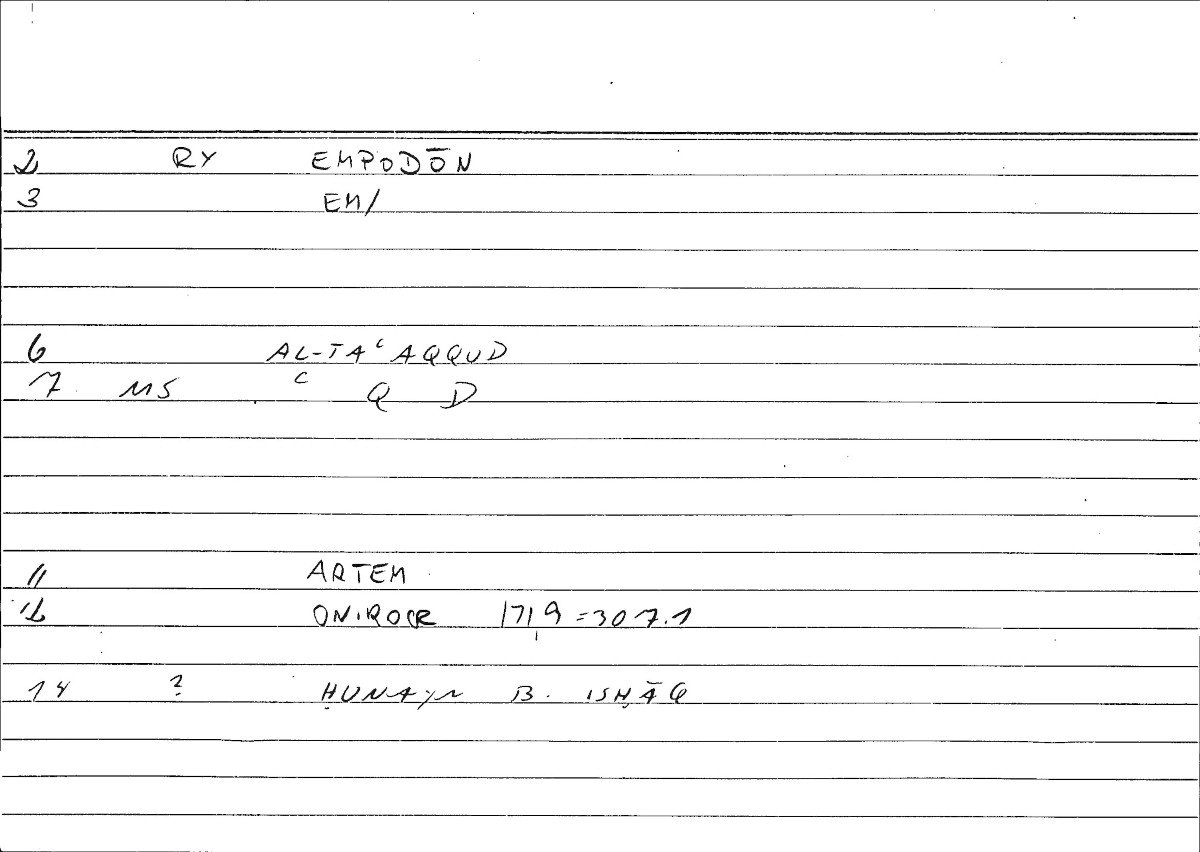 2 RY EMPODŌN
3 EM/
6 AL-TAʿAQQUD
7 MS ʿ Q D
11 ARTEM
12 ONIROCR 171,9 =307.1
14 ? ḤUNAYN B. ISḤĀQ